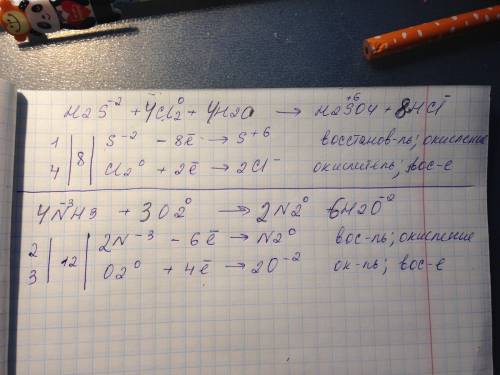 H2S⁻² + 4Cl2⁰ + 4H2O → H2S⁺⁶O4 + 8HCl⁻
1 | 8 | S⁻² - 8ē → S⁺⁶ восстанов-ль; окисление
4 | | Cl2⁰ + 2ē → 2Cl⁻ окислитель; вос-е
4N⁻³H3 + 3O2⁰ → 2N2⁰ 6H2O⁻²
2 | 12 | 2N⁻³ - 6ē → N2⁰ вос-ль; окисление
3 | | O2⁰ + 4ē → 2O⁻² ок-ль; вос-е